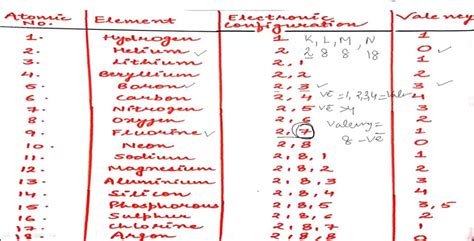 Atomic No. Element Electronic Configuration Valency
K, L, M, N
1. Hydrogen 1 1
2. Helium ✓ 2 2 8 8 18 0 ✓
3. Lithium 2, 1 1
4. Beryllium 2, 2 2
5. Boron ✓ 2, 3 ✓ VE = 1, 2, 3, 4 = Val 3 ✓
6. Carbon 2, 4 4
7. Nitrogen 2, 5 VE > 4 3
8. Oxygen 2, 6 2
9. Fluorine ✓ 2, 7 Valency = 1
10. Neon 2, 8 8 - VE 0
11. Sodium 2, 8, 1 1
12. Magnesium 2, 8, 2 2
13. Aluminium 2, 8, 3 3
14. Silicon 2, 8, 4 4
15. Phosphorous 2, 8, 5 3
16. Sulphur 2, 8, 6 2
17. Chlorine 2, 8, 7 1
18. Argon 2, 8, 8 0